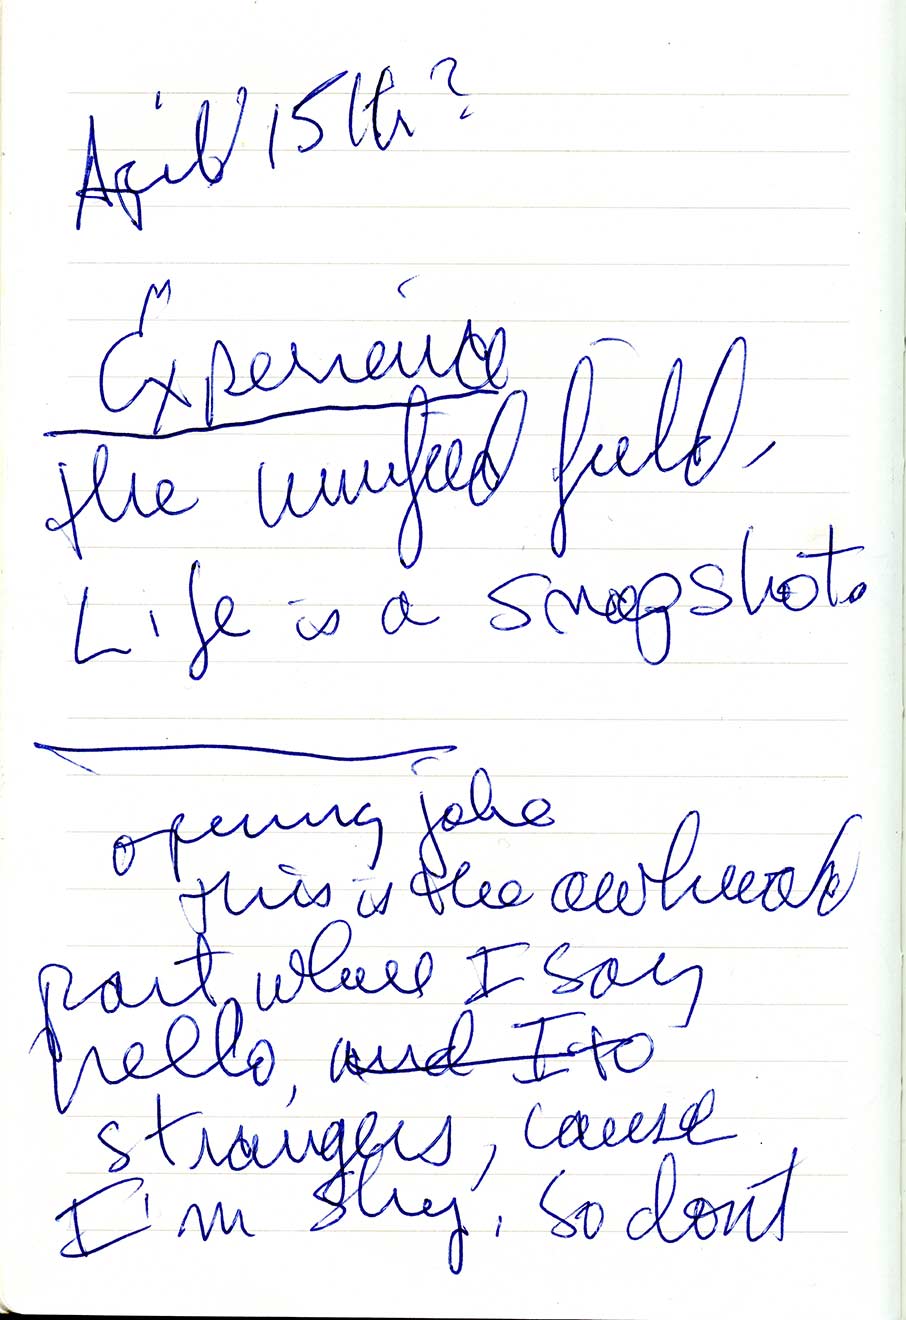 April 15th?
Experience
the unified field.
Life is a snapshot.
opening joke
this is the awkward
part where I say
hello, and I to
strangers, cause
I'm shy. So dont